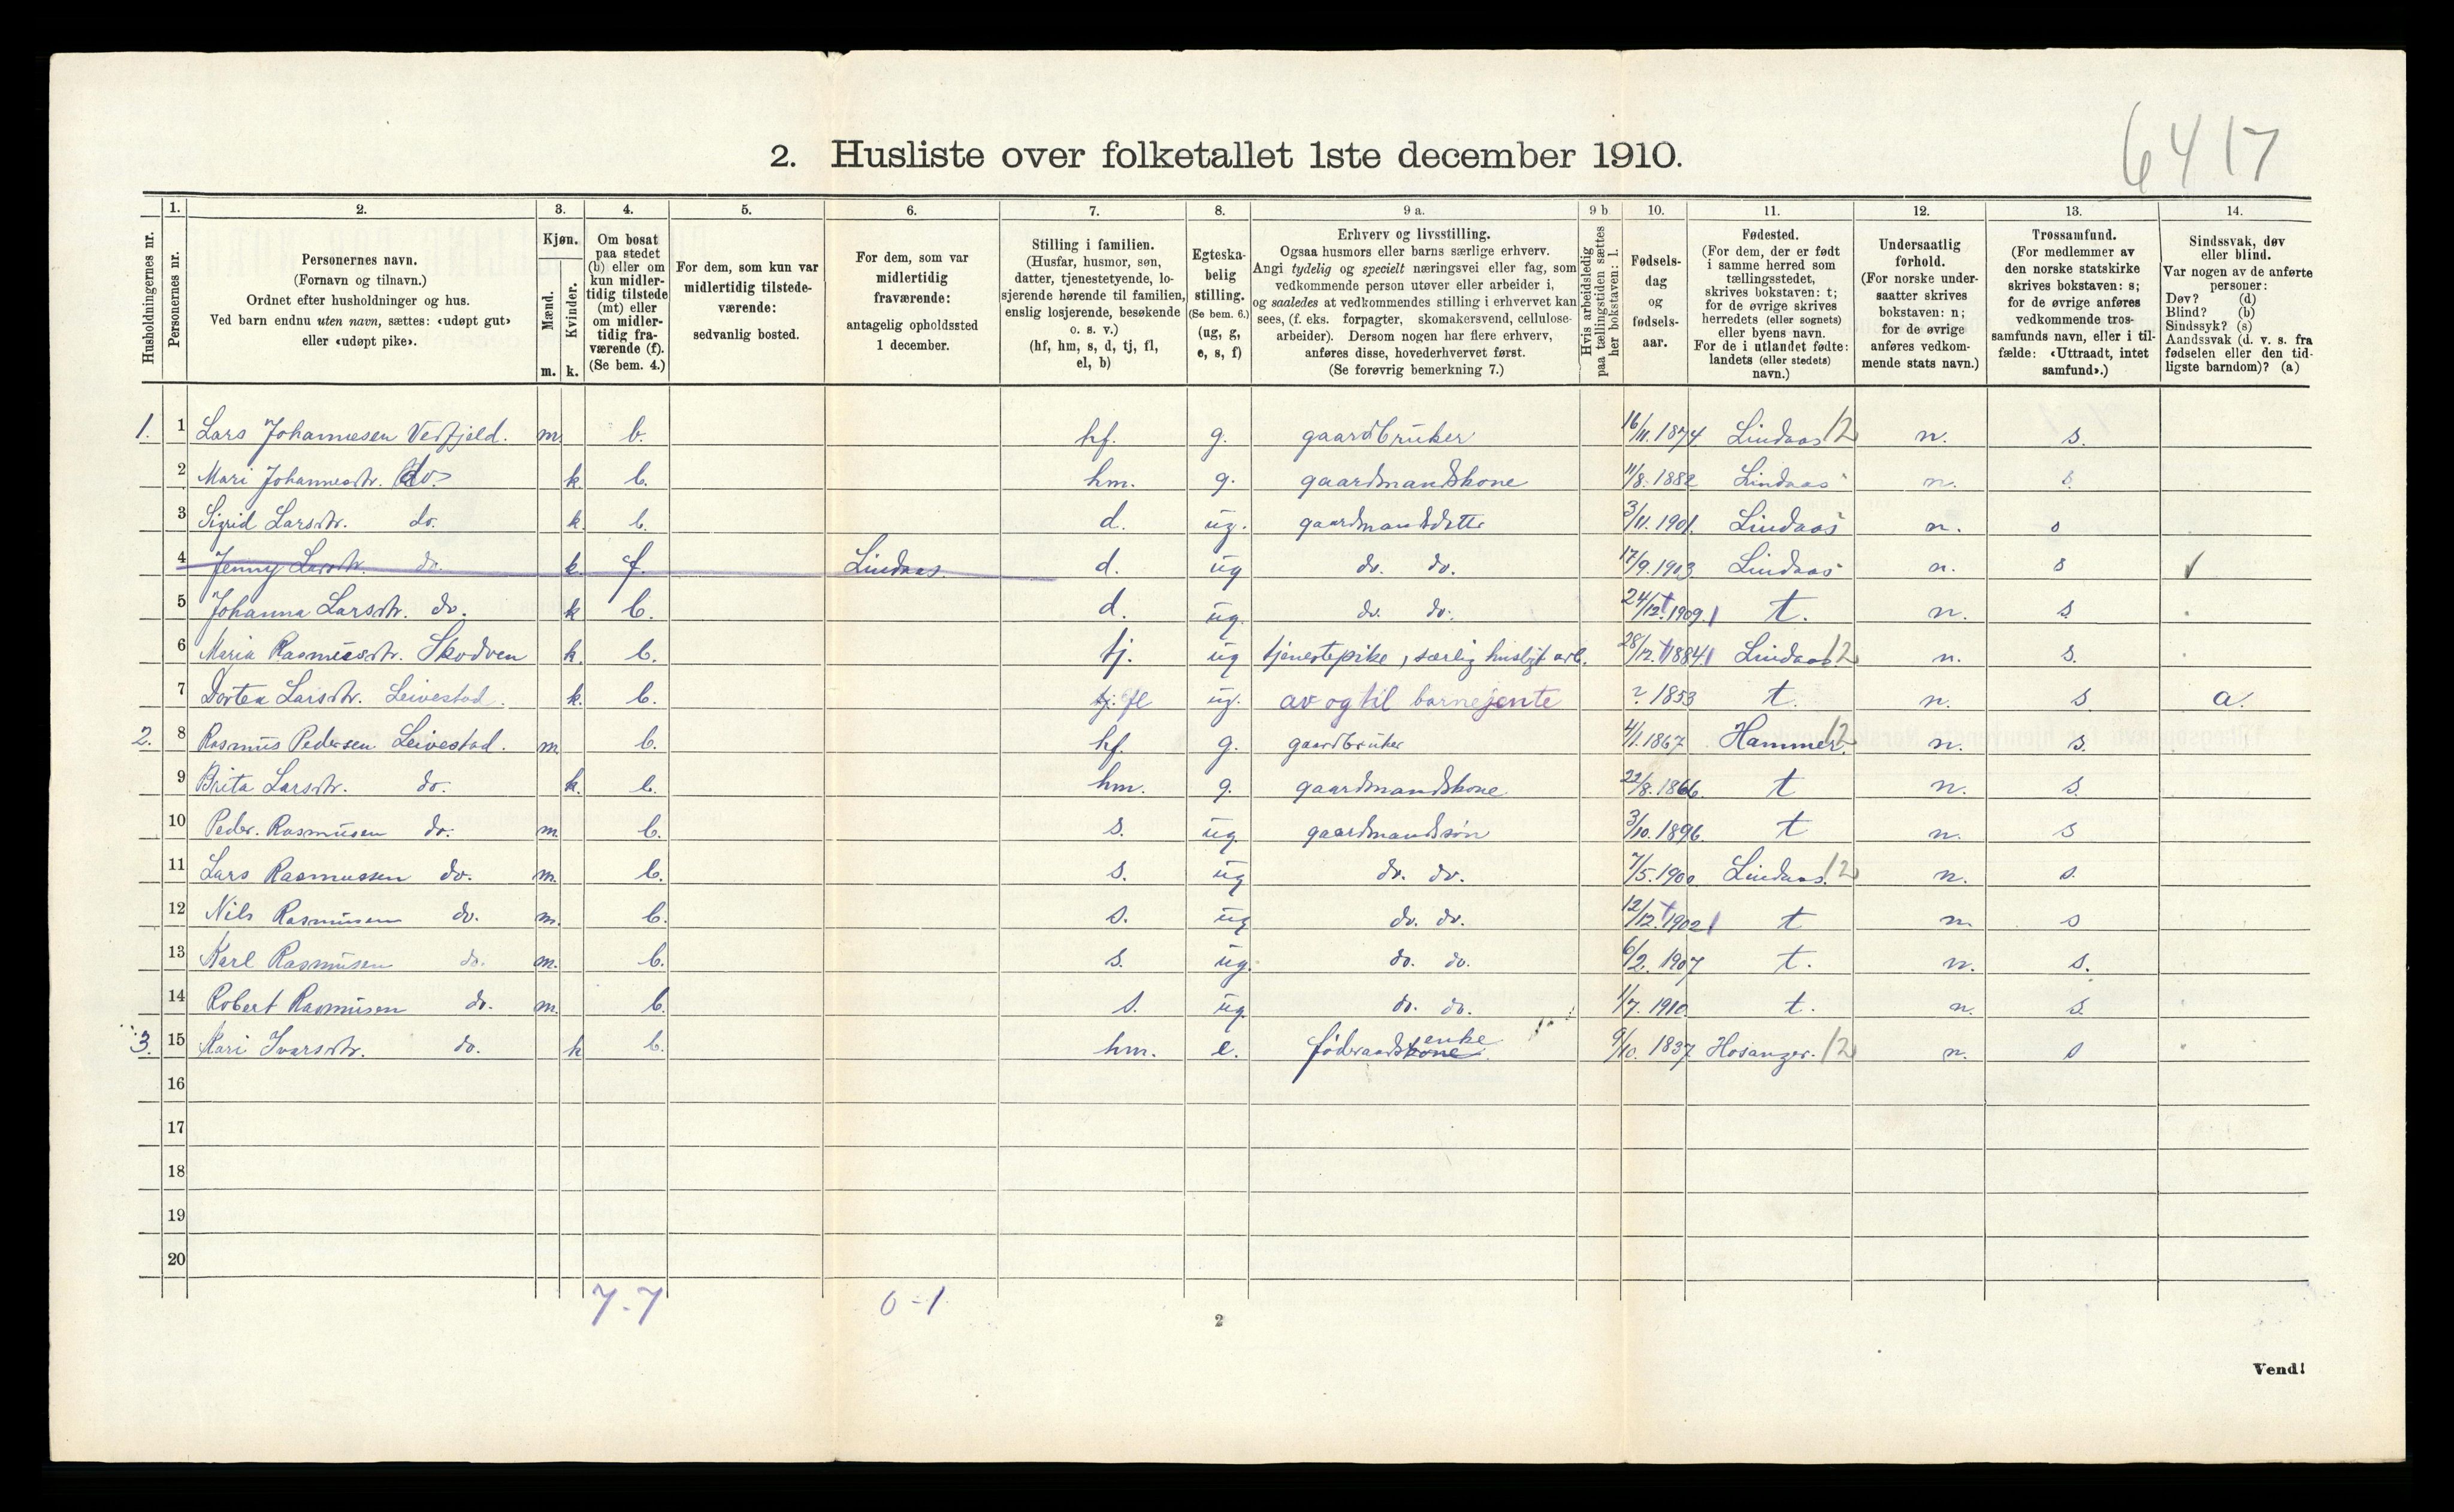 6417
2. Husliste over folketallet 1ste december 1910.
Husholdningernes nr.
1. Personernes nr.
2. Personernes navn.
(Fornavn og tilnavn.)
Ordnet efter husholdninger og hus.
Ved barn endnu uten navn, sættes: «udøpt gut»
eller «udøpt pike».
3. Kjøn.
Mænd. m.
Kvinder. k.
4. Om bosat
paa stedet
(b) eller om
kun midler-
tidig tilstede
(mt) eller
om midler-
tidig fra-
værende (f).
(Se bem. 4.)
5. For dem, som kun var
midlertidig tilstede-
værende:
sedvanlig bosted.
6. For dem, som var
midlertidig
fraværende:
antagelig opholdssted
1 december.
7. Stilling i familien.
(Husfar, husmor, søn,
datter, tjenestetyende, lo-
sjerende hørende til familien,
enslig losjerende, besøkende
o. s. v.)
(hf, hm, s, d, tj, fl,
el, b)
8. Egteska-
belig
stilling.
(Se bem. 6.)
(ug, g,
e, s, f)
9 a. Erhverv og livsstilling.
Ogsaa husmors eller barns særlige erhverv.
Angi tydelig og specielt næringsvei eller fag, som
vedkommende person utøver eller arbeider i,
og saaledes at vedkommendes stilling i erhvervet kan
sees, (f. eks. forpagter, skomakersvend, cellulose-
arbeider). Dersom nogen har flere erhverv,
anføres disse, hovederhvervet først.
(Se forøvrig bemerkning 7.)
9 b Hvis arbeidsledig
paa tællingstiden sættes
her bokstaven: l.
10. Fødsels-
dag
og
fødsels-
aar.
11. Fødested.
(For dem, der er født
i samme herred som
tællingsstedet,
skrives bokstaven: t;
for de øvrige skrives
herredets (eller sognets)
eller byens navn.
For de i utlandet fødte:
landets (eller stedets)
navn.)
12. Undersaatlig
forhold.
(For norske under-
saatter skrives
bokstaven: n;
for de øvrige
anføres vedkom-
mende stats navn.)
13. Trossamfund.
(For medlemmer av
den norske statskirke
skrives bokstaven: s;
for de øvrige anføres
vedkommende tros-
samfunds navn, eller i til-
fælde: «Uttraadt, intet
samfund».)
14. Sindssvak, døv
eller blind.
Var nogen av de anførte
personer:
Døv? (d)
Blind? (b)
Sindssyk? (s)
Aandssvak (d. v. s. fra
fødselen eller den tid-
ligste barndom)? (a)
1. 1 Lars Johannesen m. b. hf. g. gaardbruker 16/11. 1874 Lindaas 12 n. s.
2 Mari Johannesdtr. do. k. b. hm. g. gaardmandskone 11/8. 1882 Lindaas n. s.
3 Sigrid Larsdtr. do. k. b. d. ug. gaardmandsdatter 3/11. 1901. Lindaas n. s
4 Jenny Larsdtr. do. k. f. Lindaas d. ug do. do. 17/9. 1903 Lindaas n. s
5 Johanna Larsdtr. do. k b. d. ug. do. do. 24/12. 1909. t. n. s.
6 Maria Rasmusdtr. Skodven k. b. tj. ug tjenestepike, særlig husligt arb. 28/12. 1884 Lindaas 12 n. s.
7 Dortea Larsdtr. Leivestad. k. b. tj. fl ug. av og til barnejente ? 1853 t. n. s a.
2. 8 Rasmus Pedersen Leivestad. m. b. hf. g. gaardbruker 4/1. 1867 Hammer. 12 n. s.
9 Brita Larsdtr. do. k. b. hm. g. gaardmandskone 22/8. 1866. t n. s.
10 Peder. Rasmusen do. m. b. s. ug. gaardmandssøn 3/10. 1896. t n. s
11 Lars Rasmussen do. m. b. s. ug do. do. 7/5. 1900 Lindaas. 12 n. s.
12 Nils Rasmusen do. m. b. s. ug do. do. 12/12. 1902 t n s
13 Karl Rasmusen do. m. b. s. ug. do. do. 6/2. 1907 t. n. s.
14 Robert Rasmusen do. m. b. s. ug. do. do. 1/7. 1910. t. n. s.
3. 15 Kari Ivarsdtr. do. k b. hm. e. føderaadskone enke 9/10. 1837 Hosanger. 12 n. s
16
17
18
19
20
7-7 0-1
2
Vend!